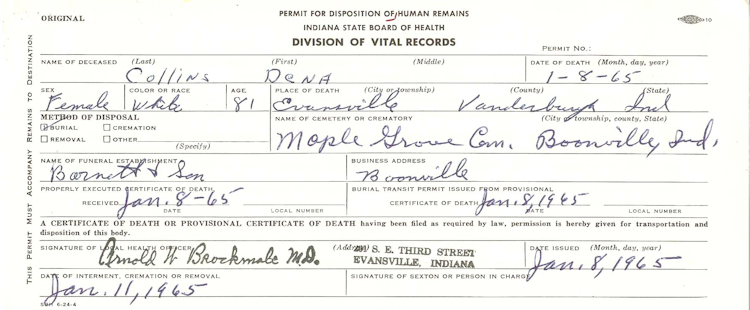 ORIGINAL
PERMIT FOR DISPOSITION OF HUMAN REMAINS
INDIANA STATE BOARD OF HEALTH
DIVISION OF VITAL RECORDS
PERMIT NO.:
NAME OF DECEASED (Last) (First) (Middle) DATE OF DEATH (Month, day, year)
Collins Dena 1-8-65
SEX COLOR OR RACE AGE PLACE OF DEATH (City or township) (County) (State)
Female White 81 Evansville Vanderburgh Ind
METHOD OF DISPOSAL NAME OF CEMETERY OR CREMATORY (City township, county, State)
BURIAL CREMATION
REMOVAL OTHER
(Specify)
Maple Grove Cem. Boonville, Ind.
NAME OF FUNERAL ESTABLISHMENT BUSINESS ADDRESS
Barnett & Son Boonville
PROPERLY EXECUTED CERTIFICATE OF DEATH BURIAL TRANSIT PERMIT ISSUED FROM PROVISIONAL
RECEIVED Jan. 8-65 CERTIFICATE OF DEATH Jan. 8, 1965
DATE LOCAL NUMBER DATE LOCAL NUMBER
A CERTIFICATE OF DEATH OR PROVISIONAL CERTIFICATE OF DEATH having been filed as required by law, permission is hereby given for transportation and
disposition of this body.
SIGNATURE OF LOCAL HEALTH OFFICER (Address) DATE ISSUED (Month, day, year)
Arnold W Brockmole M.D. S. E. THIRD STREET
EVANSVILLE, INDIANA
Jan. 8, 1965
DATE OF INTERMENT, CREMATION OR REMOVAL SIGNATURE OF SEXTON OR PERSON IN CHARGE
Jan. 11, 1965
6-24-4
THIS PERMIT MUST ACCOMPANY REMAINS TO DESTINATION